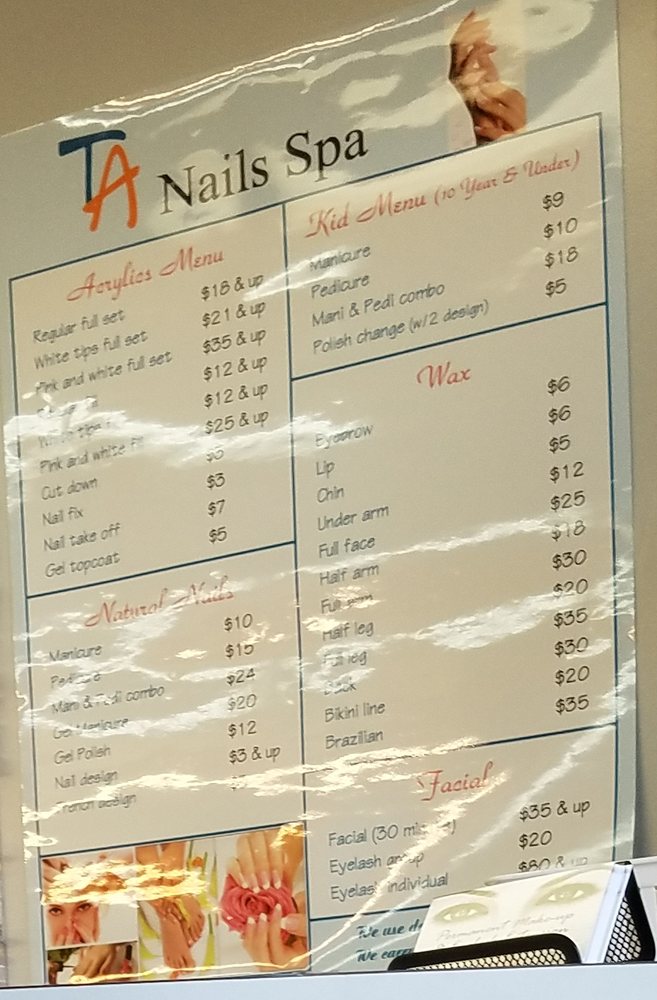 TA Nails Spa
Acrylics Menu
Regular full set $18 & up
White tips full set $21 & up
Pink and white full set $35 & up
Regular fill $12 & up
White tips $12 & up
Pink and white fill $25 & up
Cut down
Nail fix $3
Nail take off $7
Gel topcoat $5
Natural Nails
Manicure $10
Pedicure $15
Mani & Pedi combo $24
Gel Manicure $20
Gel Polish $12
Nail design $3 & up
French design
Kid Menu (10 Year & Under)
Manicure $9
Pedicure $10
Mani & Pedi combo $18
Polish change (w/2 design) $5
Wax
Eyebrow $6
Lip $6
Chin $5
Under arm $12
Full face $25
Half arm $18
Full arm $30
Half leg $20
Full leg $35
Back $30
Bikini line $20
Brazilian $35
Facial
Facial (30 minutes) $35 & up
Eyelash group $20
Eyelash individual $80 & up
We use
We carry
Permanent Makeup